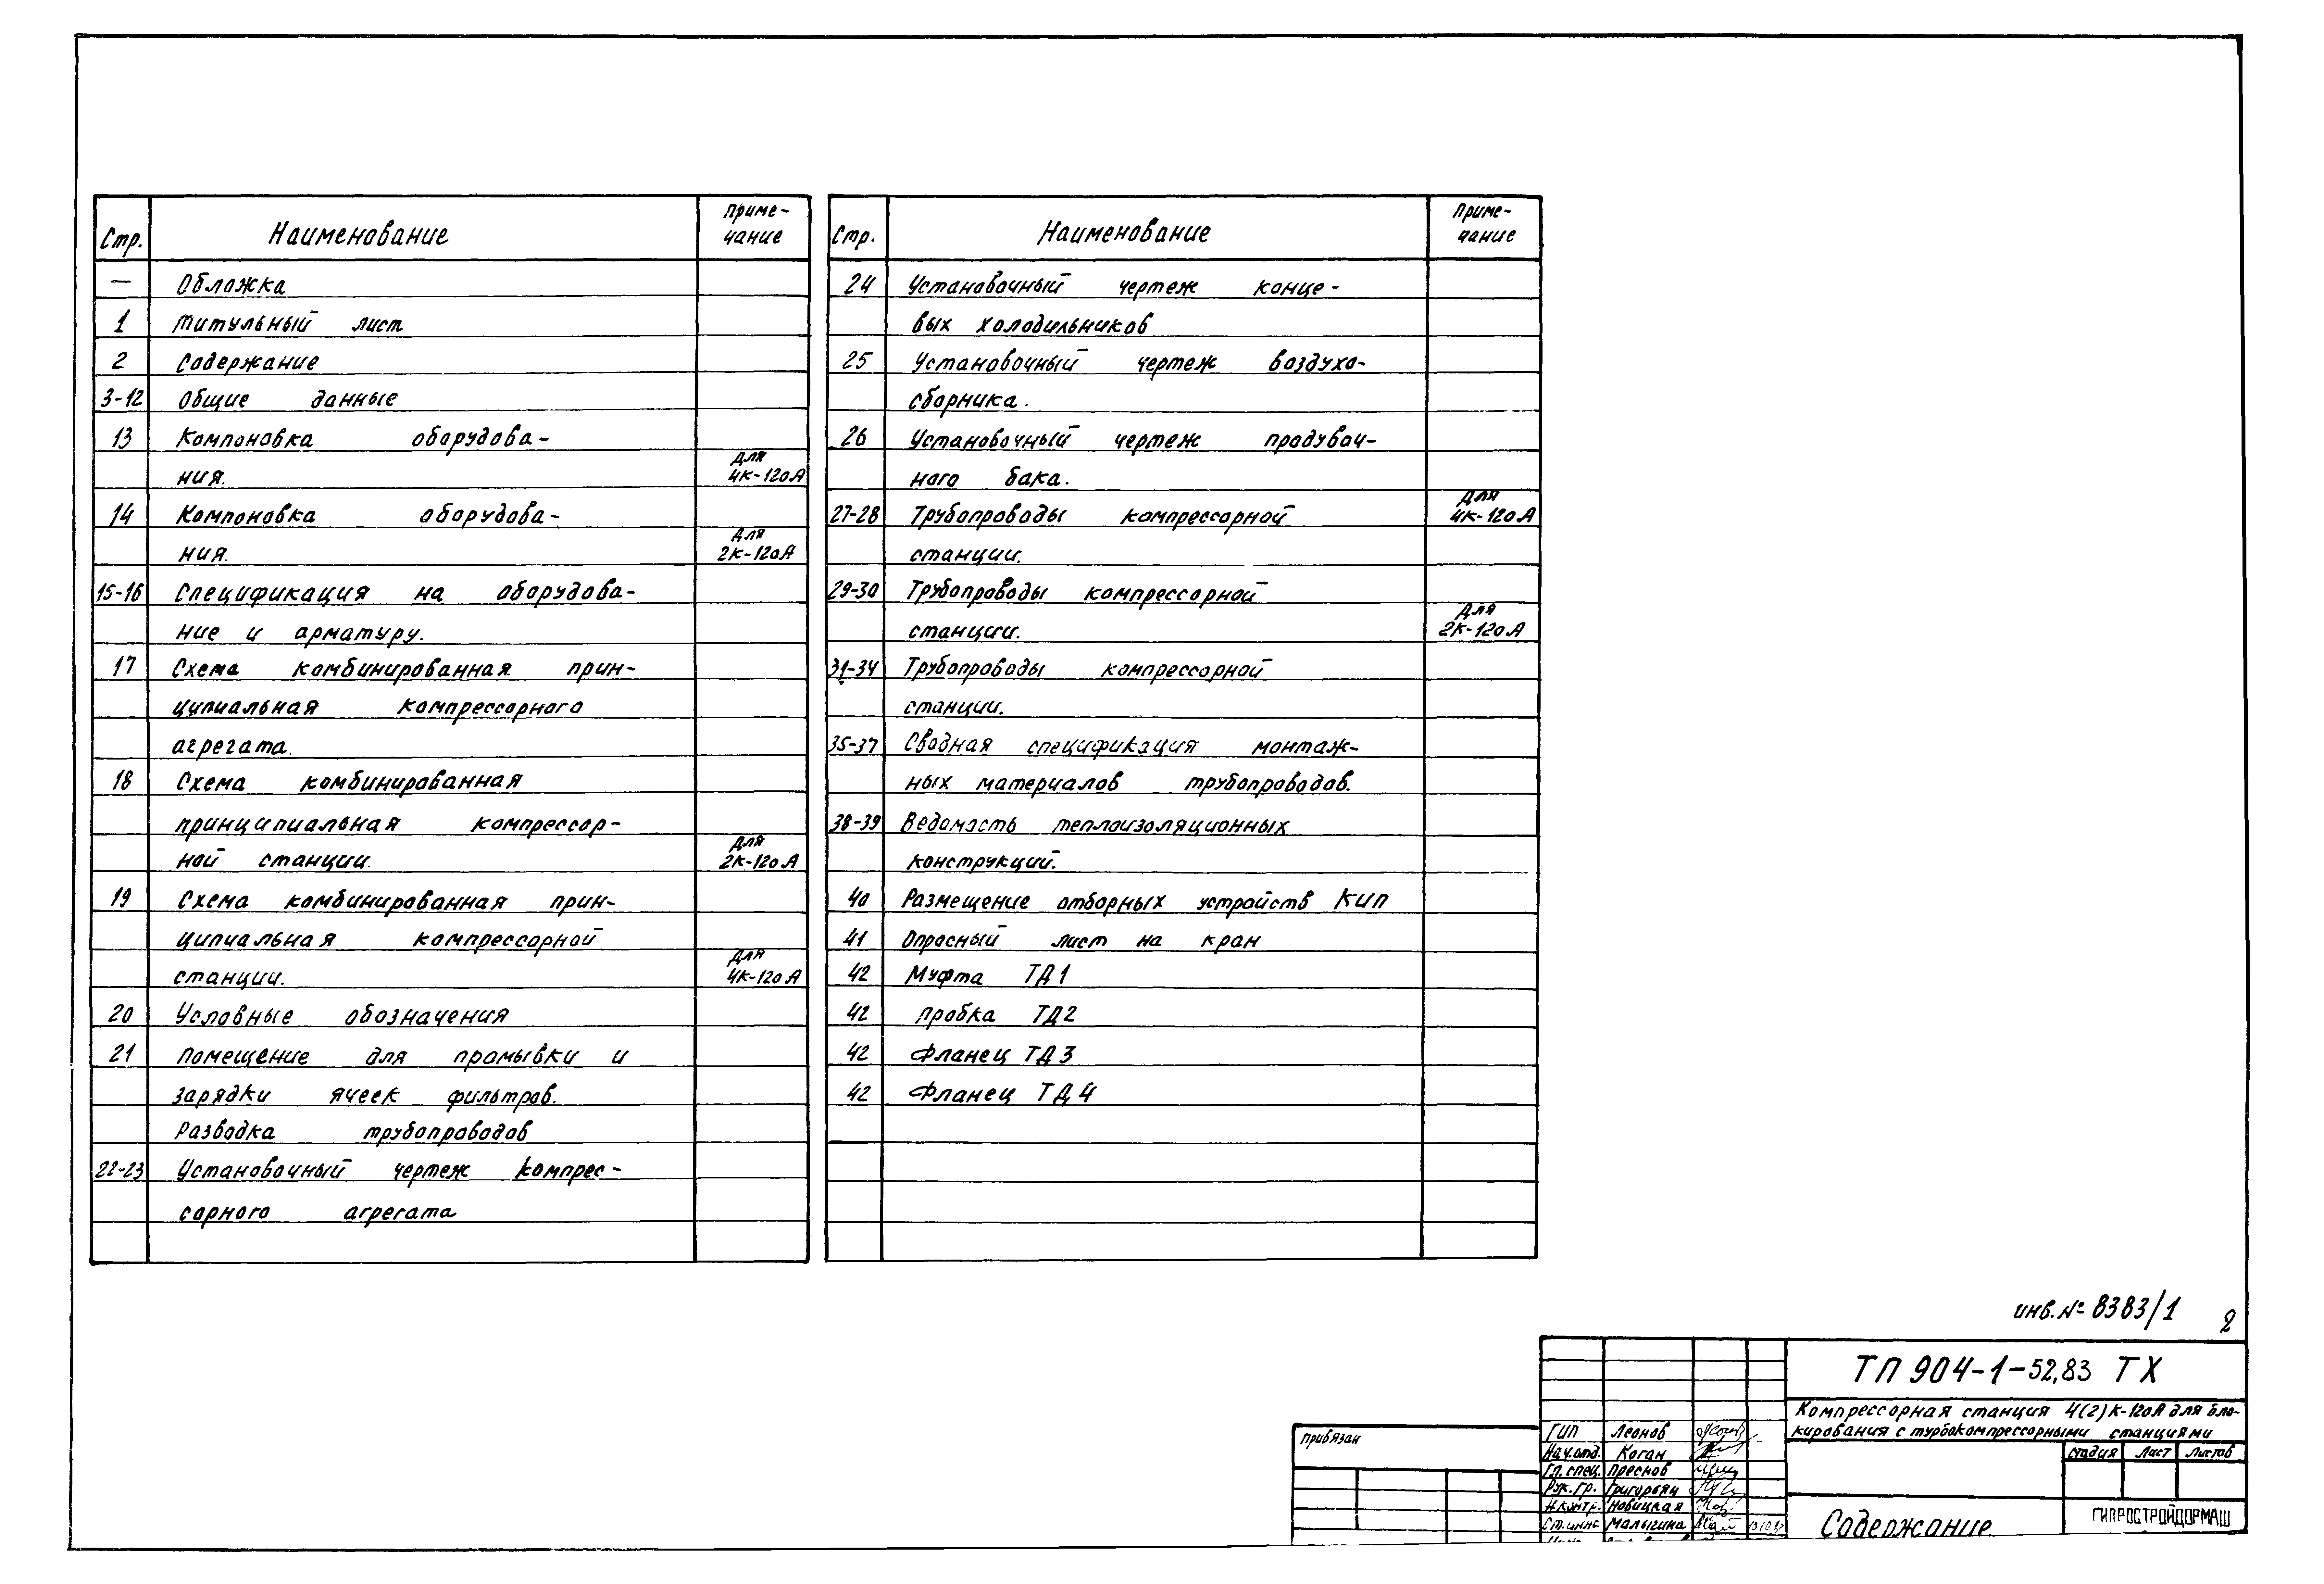 Стр. Наименование Приме-
чание
— Обложка
1 Титульный лист
2 Содержание
3-12 Общие данные
13 Компоновка оборудова-
ния. для 4К-120А
14 Компоновка оборудова-
ния. для 2К-120А
15-16 Спецификация на оборудова-
ние и арматуру.
17 Схема комбинированная прин-
ципиальная компрессорного
агрегата.
18 Схема комбинированная
принципиальная компрессор-
ной станции. для 2К-120А
19 Схема комбинированная прин-
ципиальная компрессорной
станции. для 4К-120А
20 Условные обозначения
21 Помещение для промывки и
зарядки ячеек фильтров.
Разводка трубопроводов
22-23 Установочный чертеж компрес-
сорного агрегата
Стр. Наименование Приме-
чание
24 Установочный чертеж конце-
вых холодильников
25 Установочный чертеж воздухо-
сборника.
26 Установочный чертеж продувоч-
ного бака.
27-28 Трубопроводы компрессорной для 4К-120А
станции.
29-30 Трубопроводы компрессорной
станции. для 2К-120А
31-34 Трубопроводы компрессорной
станции.
35-37 Сводная спецификация монтаж-
ных материалов трубопроводов.
38-39 Ведомость теплоизоляционных
конструкций.
40 Размещение отборных устройств КИП
41 Опросный лист на кран
42 Муфта ТД1
42 Пробка ТД2
42 Фланец ТД3
42 Фланец ТД4
инв. № 8383/1 2
ТП 904-1-52.83 ТХ
Компрессорная станция 4(2)К-120А для бло-
кирования с турбокомпрессорными станциями
стадия Лист Листов
Содержание
ГИПРОСТРОЙДОРМАШ
Привязан
ГИП Леонов
Нач.отд. Коган
Гл.спец. Преснов
Рук.гр. Григорьян
Н.контр. Новицкая
Ст.инж. Малыгина